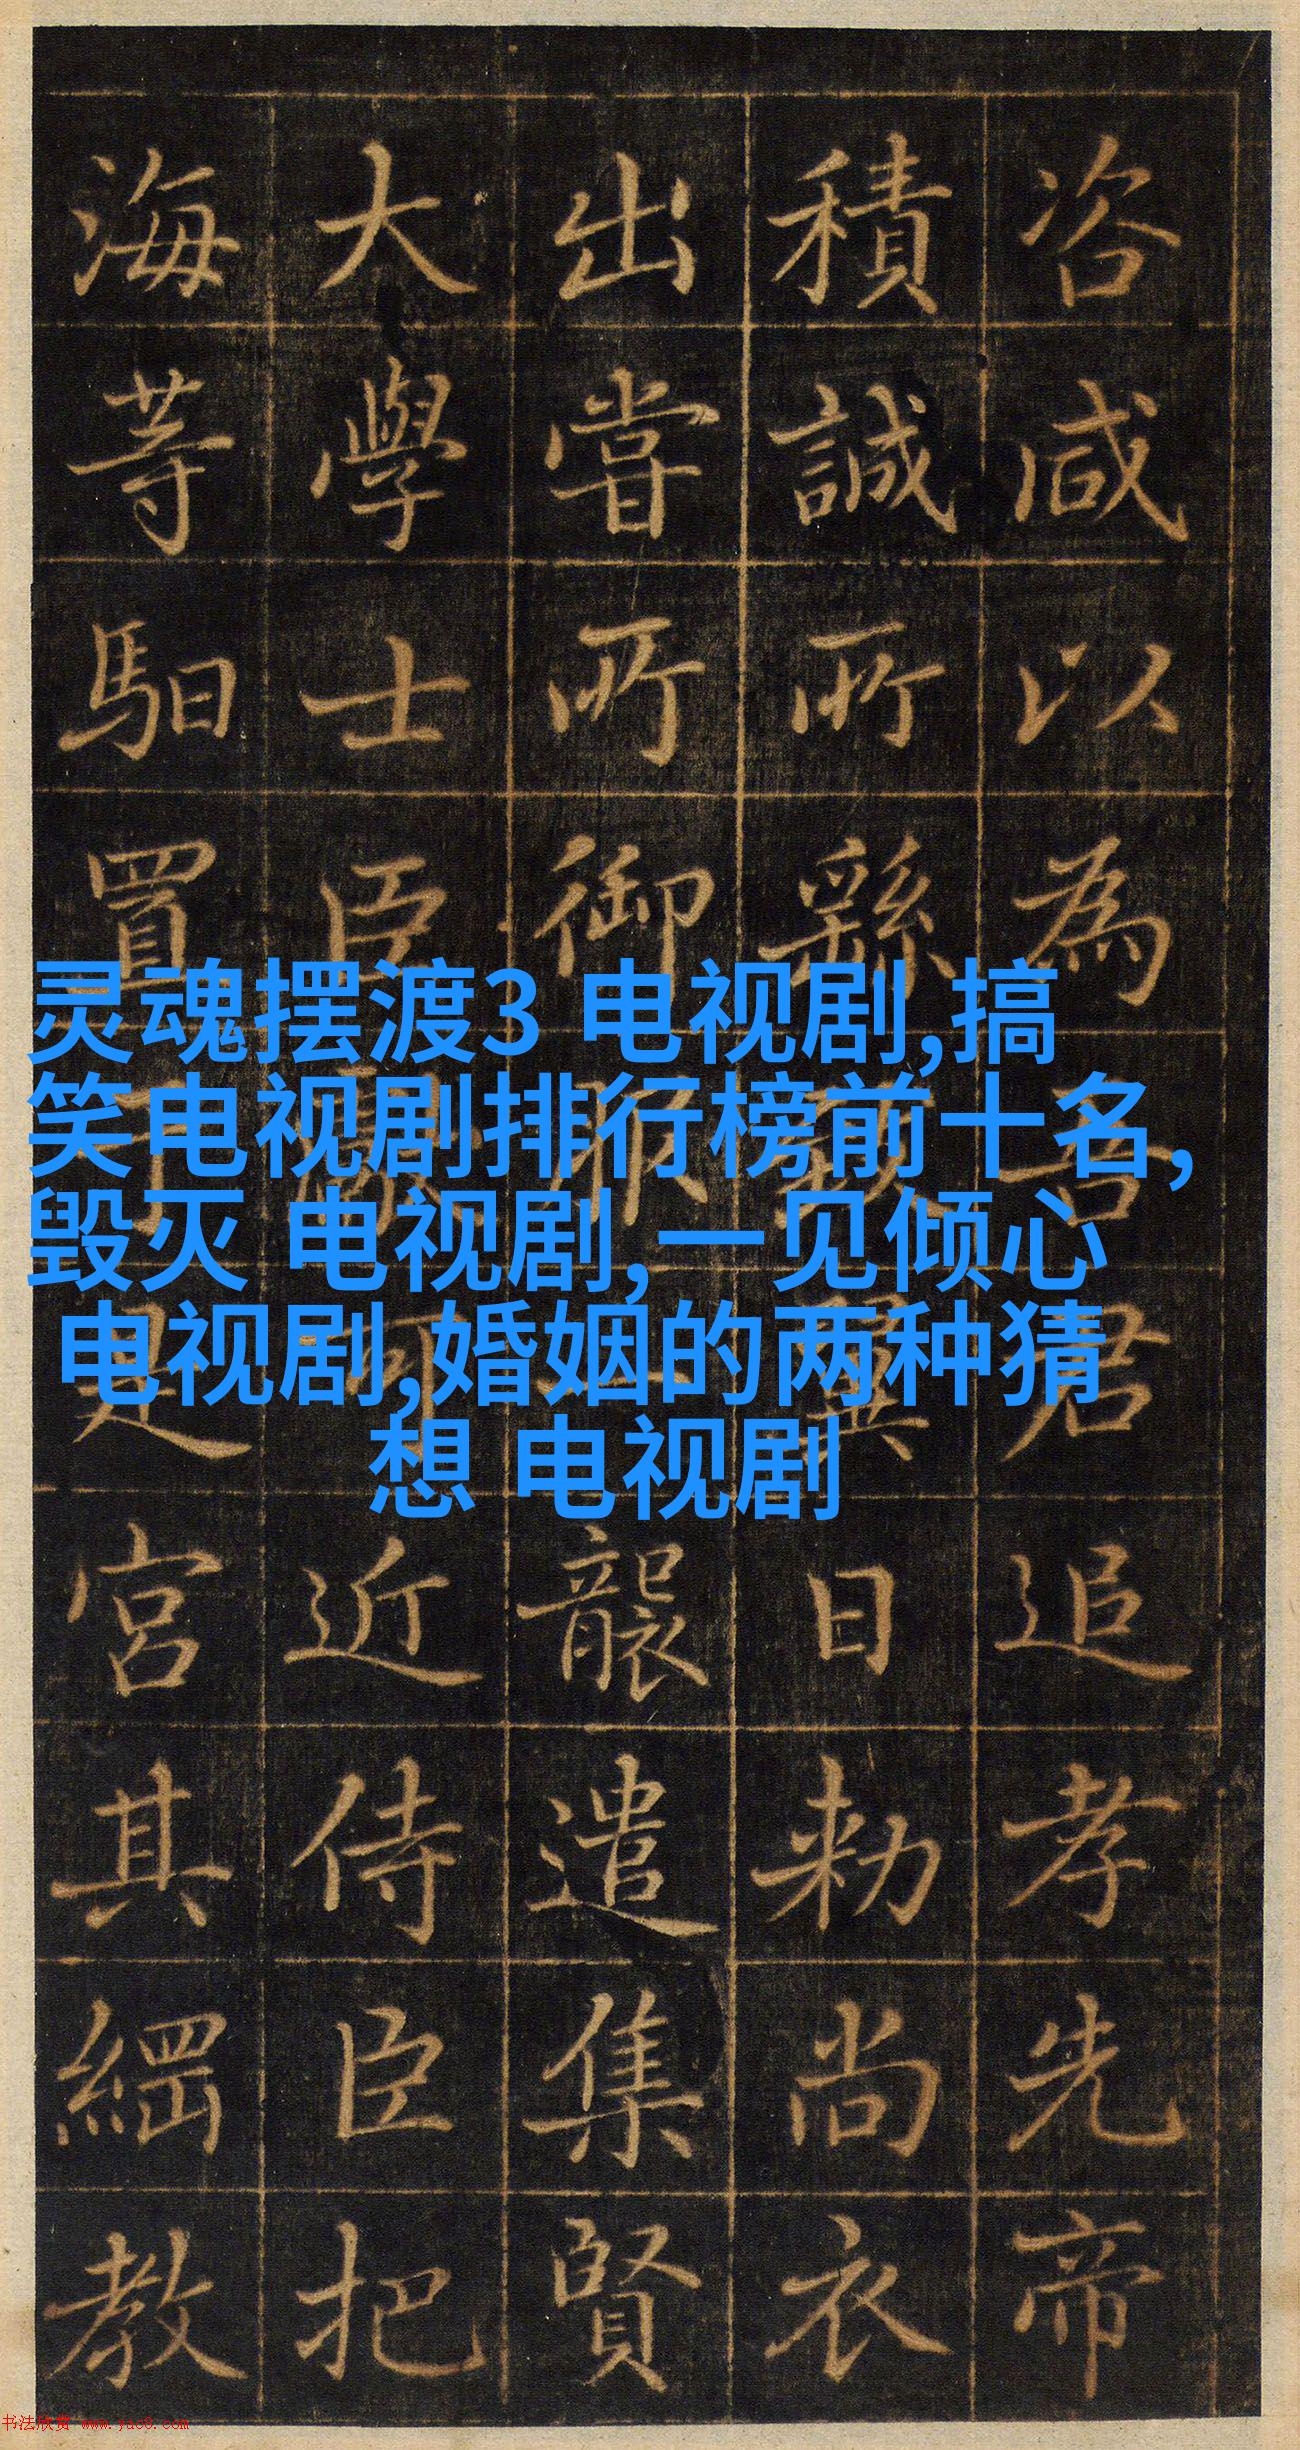 咨咸以為君追孝先帝
積誠所繇日勑尚衣
出嘗所御服一襲遣集賢
大學士臣近侍臣把
海等馹置于是宮其綱教
灵魂摆渡3 电视剧,搞
笑电视剧排行榜前十名,
毁灭 电视剧,一见倾心
电视剧,婚姻的两种猜
想 电视剧
书法欣赏 www.yac8.com